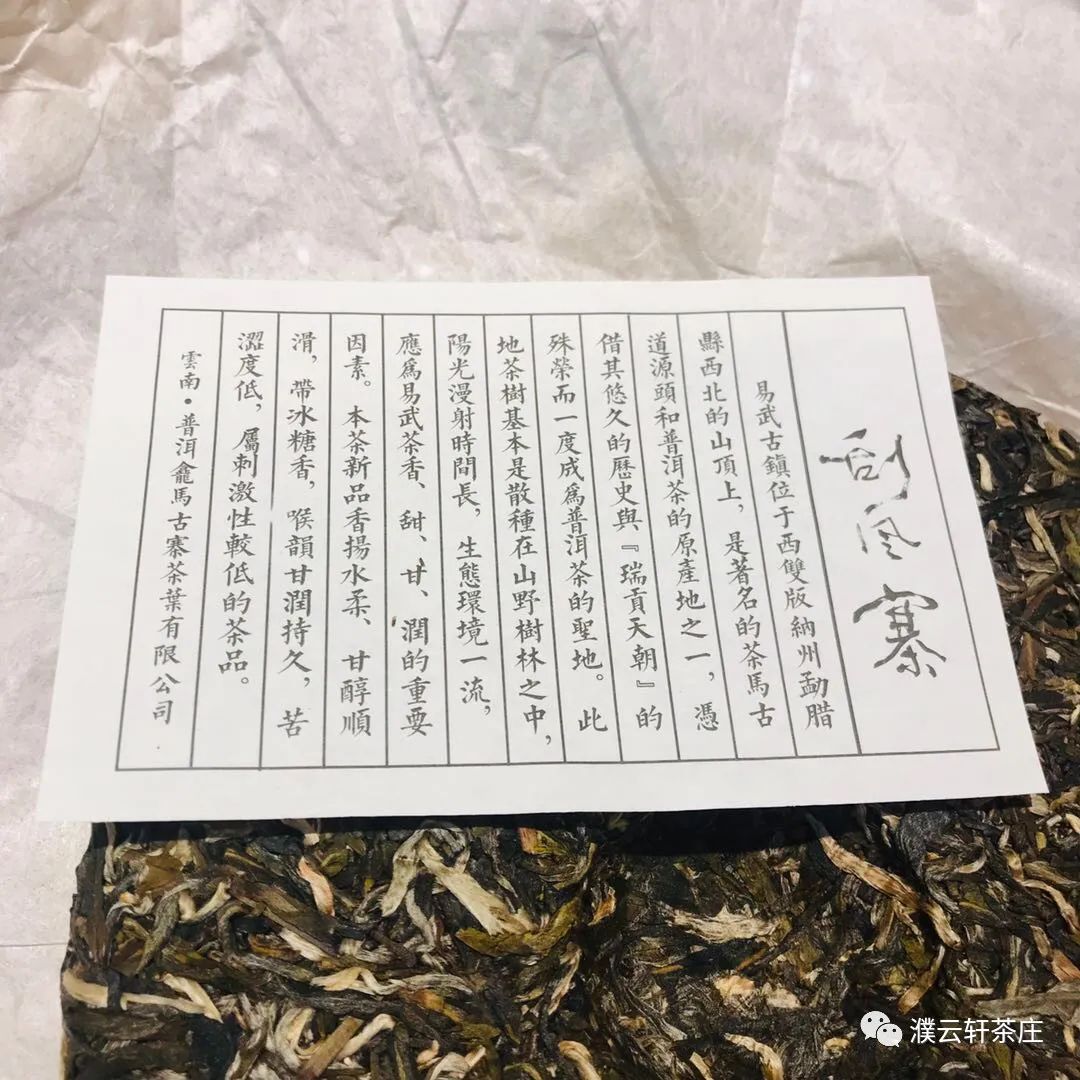 刮风寨
易武古鎮位于西雙版納州勐腊
縣西北的山頂上，是著名的茶馬古
道源頭和普洱茶的原產地之一，憑
借其悠久的歷史與『瑞貢天朝』的
殊榮而一度成爲普洱茶的聖地。此
地茶樹基本是散種在山野樹林之中，
陽光漫射時間長，生態環境一流，
應爲易武茶香、甜、甘、潤的重要
因素。本茶新品香揚水柔、甘醇順
滑，帶冰糖香，喉韻甘潤持久，苦
澀度低，屬刺激性較低的茶品。
雲南·普洱龕馬古寨茶葉有限公司
濮云轩茶庄